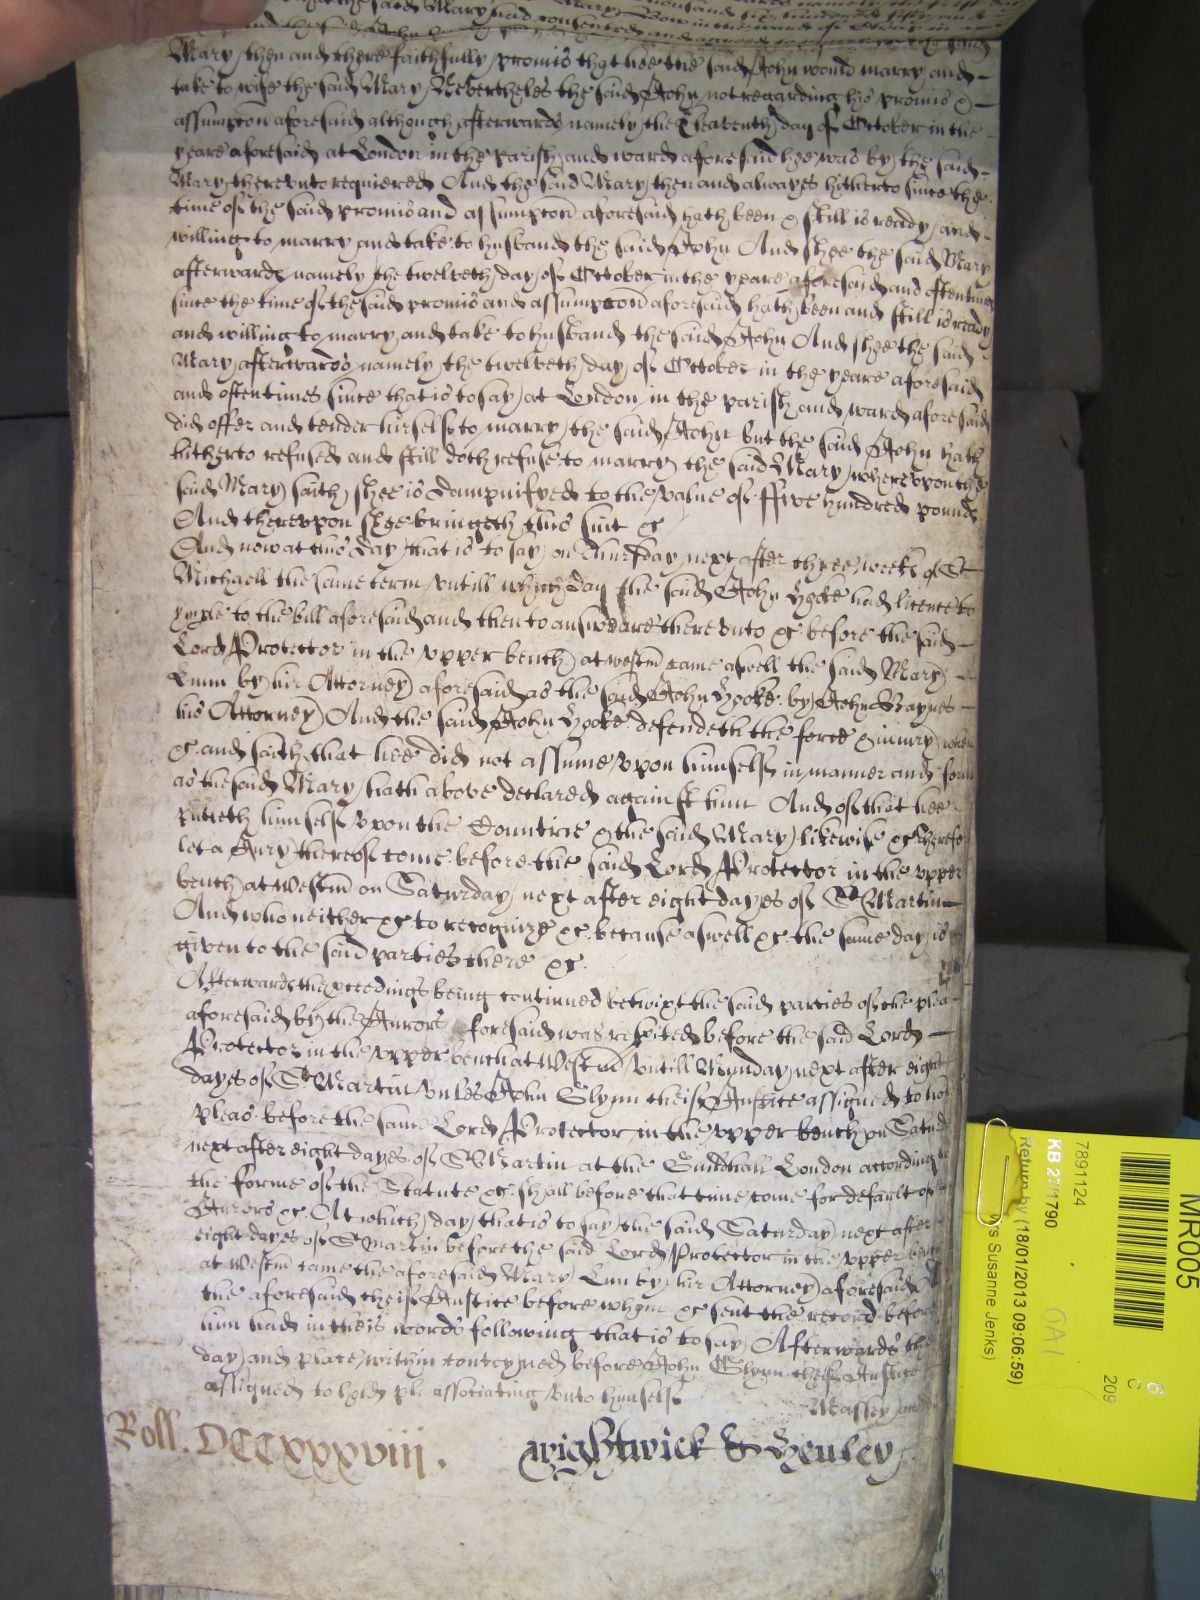 the said Mary had consented and agreed
Mary then and there faithfully promis that hee the said John would marry and
take to wife the said Mary Nevertheles the said John not regarding his promis &
assumpcon aforesaid although afterwards namely the Eleaventh day of October in the
yeare aforesaid at London in the parish and ward aforesaid hee was by the said
Mary therevnto requiered And the said Mary then and alwayes hitherto since the
time of the said promis and assumpcon aforesaid hath been & still is ready and
willing to marry and take to husband the said John And shee the said Mary
afterwards namely the twelveth day of October in the yeare aforesaid and oftentimes
since the time of the said promis and assumpcon aforesaid hath been and still is ready
and willing to marry and take to husband the said John And shee the said
Mary afterwards namely the twelveth day of October in the yeare aforesaid
and oftentimes since that is to say at London in the parish and ward aforesaid
did offer and tender hirself to marry the said John but the said John hath
hitherto refused and still doth refuse to marry the said Mary wherevpon the
said Mary saith shee is dampnifyed to the value of ffive hundred pounds
And therevpon shee bringeth this suit &c
And now at this day that is to say on Thursday next after three weeks of St
Michaell the same term vntill which day the said John Hooke had licence to
imple to the bill aforesaid and then to answeare there vnto &c before the said
Lord Protector in the vpper bench at westm came aswell the said Mary
Lunn by hir Attorney aforesaid as the said John Hooke by John Baynes
his Attorney And the said John Hooke defendeth the force & iniury when
&c and saith that hee did not assume vpon himself in manner and form
as the said Mary hath above declared against him And of that hee
putteth himself vpon the Countrie & the said Mary likewise &c Therefo
let a Jury thereof come before the said Lord Protector in the vpper
bench at Westm on Saturday next after eight dayes of St Martin
And who neither &c to recognize &c because aswell &c the same day is
given to the said parties there &c
Afterwards the proceedings being continued betwixt the said parties of the plea
aforesaid by the Jurors foresaid was respited before the said Lord
Protector in the vpper bench at Westm vntill Munday next after eight
dayes of St Martin vnles John Glynn cheif Justice assigned to hold
pleas before the same Lord Protector in the vpper bench on Saturd
next after eight dayes of St Martin at the Guildhall London according to
the forme of the Statute &c shall before that time come for default of
Jurors &c At which day that is to say the said Saturday next after
eight dayes of St Martin before the said Lord Protector in the vpper bench
at Westm came the aforesaid Mary Lunn by hir Attorney aforesaid
the aforesaid cheif Justice before whom &c sent the record before
him had in theis words following that is to say Afterwards the
day and place within conteyned before John Glynn cheif Justice
assigned to hold pl associating vnto himself
Massey
Roll. DCCxxxviii. Wightwick & Henley
MR005
7891124
KB 27/1790
Return by (18/01/2013 09:06:59)
Susanne Jenks)
C
209